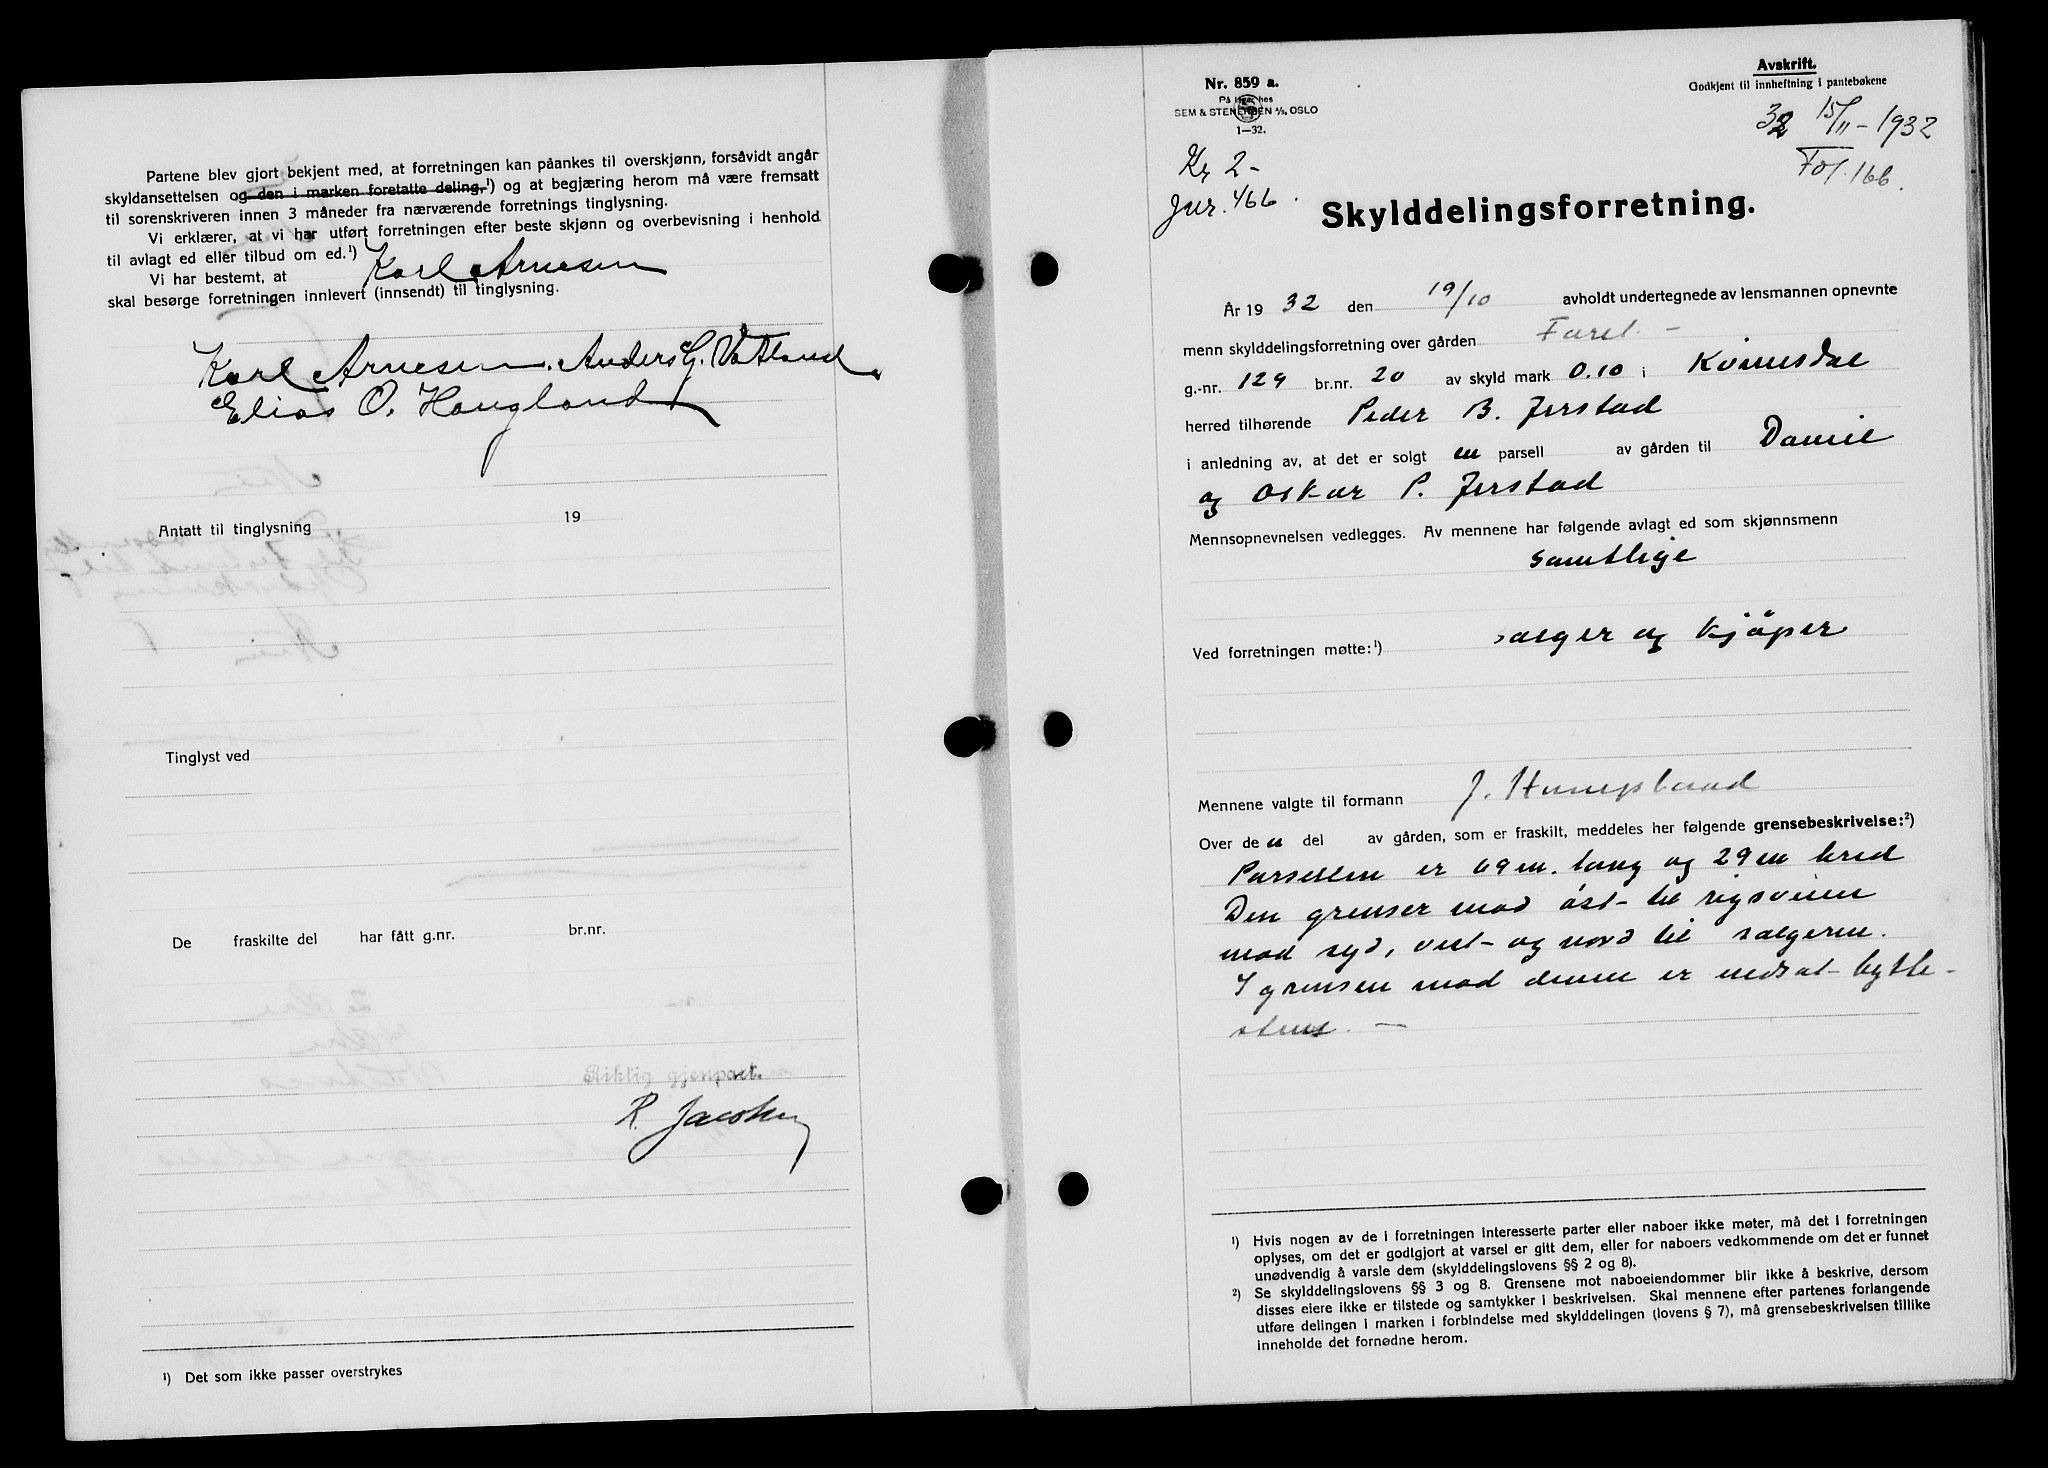 Partene blev gjort bekjent med, at forretningen kan påankes til overskjønn, forsåvidt angår
skyldansettelsen og den i marken foretatte deling,¹) og at begjæring herom må være fremsatt
til sorenskriveren innen 3 måneder fra nærværende forretnings tinglysning.
Vi erklærer, at vi har utført forretningen efter beste skjønn og overbevisning i henhold
til avlagt ed eller tilbud om ed.¹)
Vi har bestemt, at Karl Arnesen
skal besørge forretningen innlevert (innsendt) til tinglysning.
Karl Arnesen. Anders G. Vatland
Elias O. Haugland
Antatt til tinglysning 19
Tinglyst ved
De fraskilte del har fått g.nr. br.nr.
Riktig gjenpart.
R. Jacobsen
¹) Det som ikke passer overstrykes
Nr. 859 a.
På lager hos
SEM & STENERSEN A/S, OSLO
1—32.
Avskrift.
Godkjent til innheftning i pantebøkene
32 15/11-1932
Fol. 166.
Kr 2-
Jnr. 466.
Skylddelingsforretning.
År 1932 den 19/10 avholdt undertegnede av lensmannen opnevnte
menn skylddelingsforretning over gården Faret -
g.-nr. 129 br.nr. 20 av skyld mark 0.10 i Kvinesdal
herred tilhørende Peder B. Jerstad
i anledning av, at det er solgt en parsell av gården til Daniel
og Oskar P. Jerstad
Mennsopnevnelsen vedlegges. Av mennene har følgende avlagt ed som skjønnsmenn
samtlige
Ved forretningen møtte:¹) sælger og kjöper
Mennene valgte til formann J.
Over den del av gården, som er fraskilt, meddeles her følgende grensebeskrivelse:²)
Parsellen er 69 m. lang og 29 m bred
Den grenser mod öst - til rigsveien
mod syd, vest - og nord til sælgeren.
I grensen mod denne er nedsat - bytte-
stene. -
¹) Hvis nogen av de i forretningen interesserte parter eller naboer ikke møter, må det i forretningen
oplyses, om det er godtgjort at varsel er gitt dem, eller for naboers vedkommende om det er funnet
unødvendig å varsle dem (skylddelingslovens §§ 2 og 8).
²) Se skylddelingslovens §§ 3 og 8. Grensene mot naboeiendommer blir ikke å beskrive, dersom
disses eiere ikke er tilstede og samtykker i beskrivelsen. Skal mennene efter partenes forlangende
utføre delingen i marken i forbindelse med skylddelingen (lovens § 7), må grensebeskrivelsen tillike
inneholde det fornødne herom.